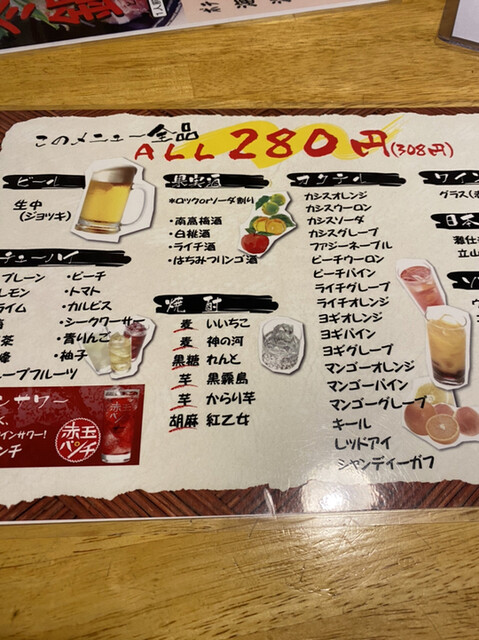 このメニュー全品
ALL 280円(308円)
ビール
生中
(ジョッキ)
チューハイ
プレーン
レモン
ライム
・ピーチ
・トマト
・カルピス
・シークワーサー
・青りんご
・柚子
レープフルーツ
赤玉
パンチ
果実酒
*ロックorソーダ割り
・南高梅酒
・白桃酒
・ライチ酒
・はちみつリンゴ酒
焼酎
麦 いいちこ
麦 神の河
黒糖 れんと
芋 黒霧島
芋 からり芋
胡麻 紅乙女
カクテル
カシスオレンジ
カシスウーロン
カシスソーダ
カシスグレープ
ファジーネーブル
ピーチウーロン
ピーチパイン
ライチグレープ
ライチオレンジ
ヨギオレンジ
ヨギパイン
ヨギグレープ
マンゴーオレンジ
マンゴーパイン
マンゴーグレープ
キール
レッドアイ
シャンディーガフ
ワイン
グラス(
日本
立山